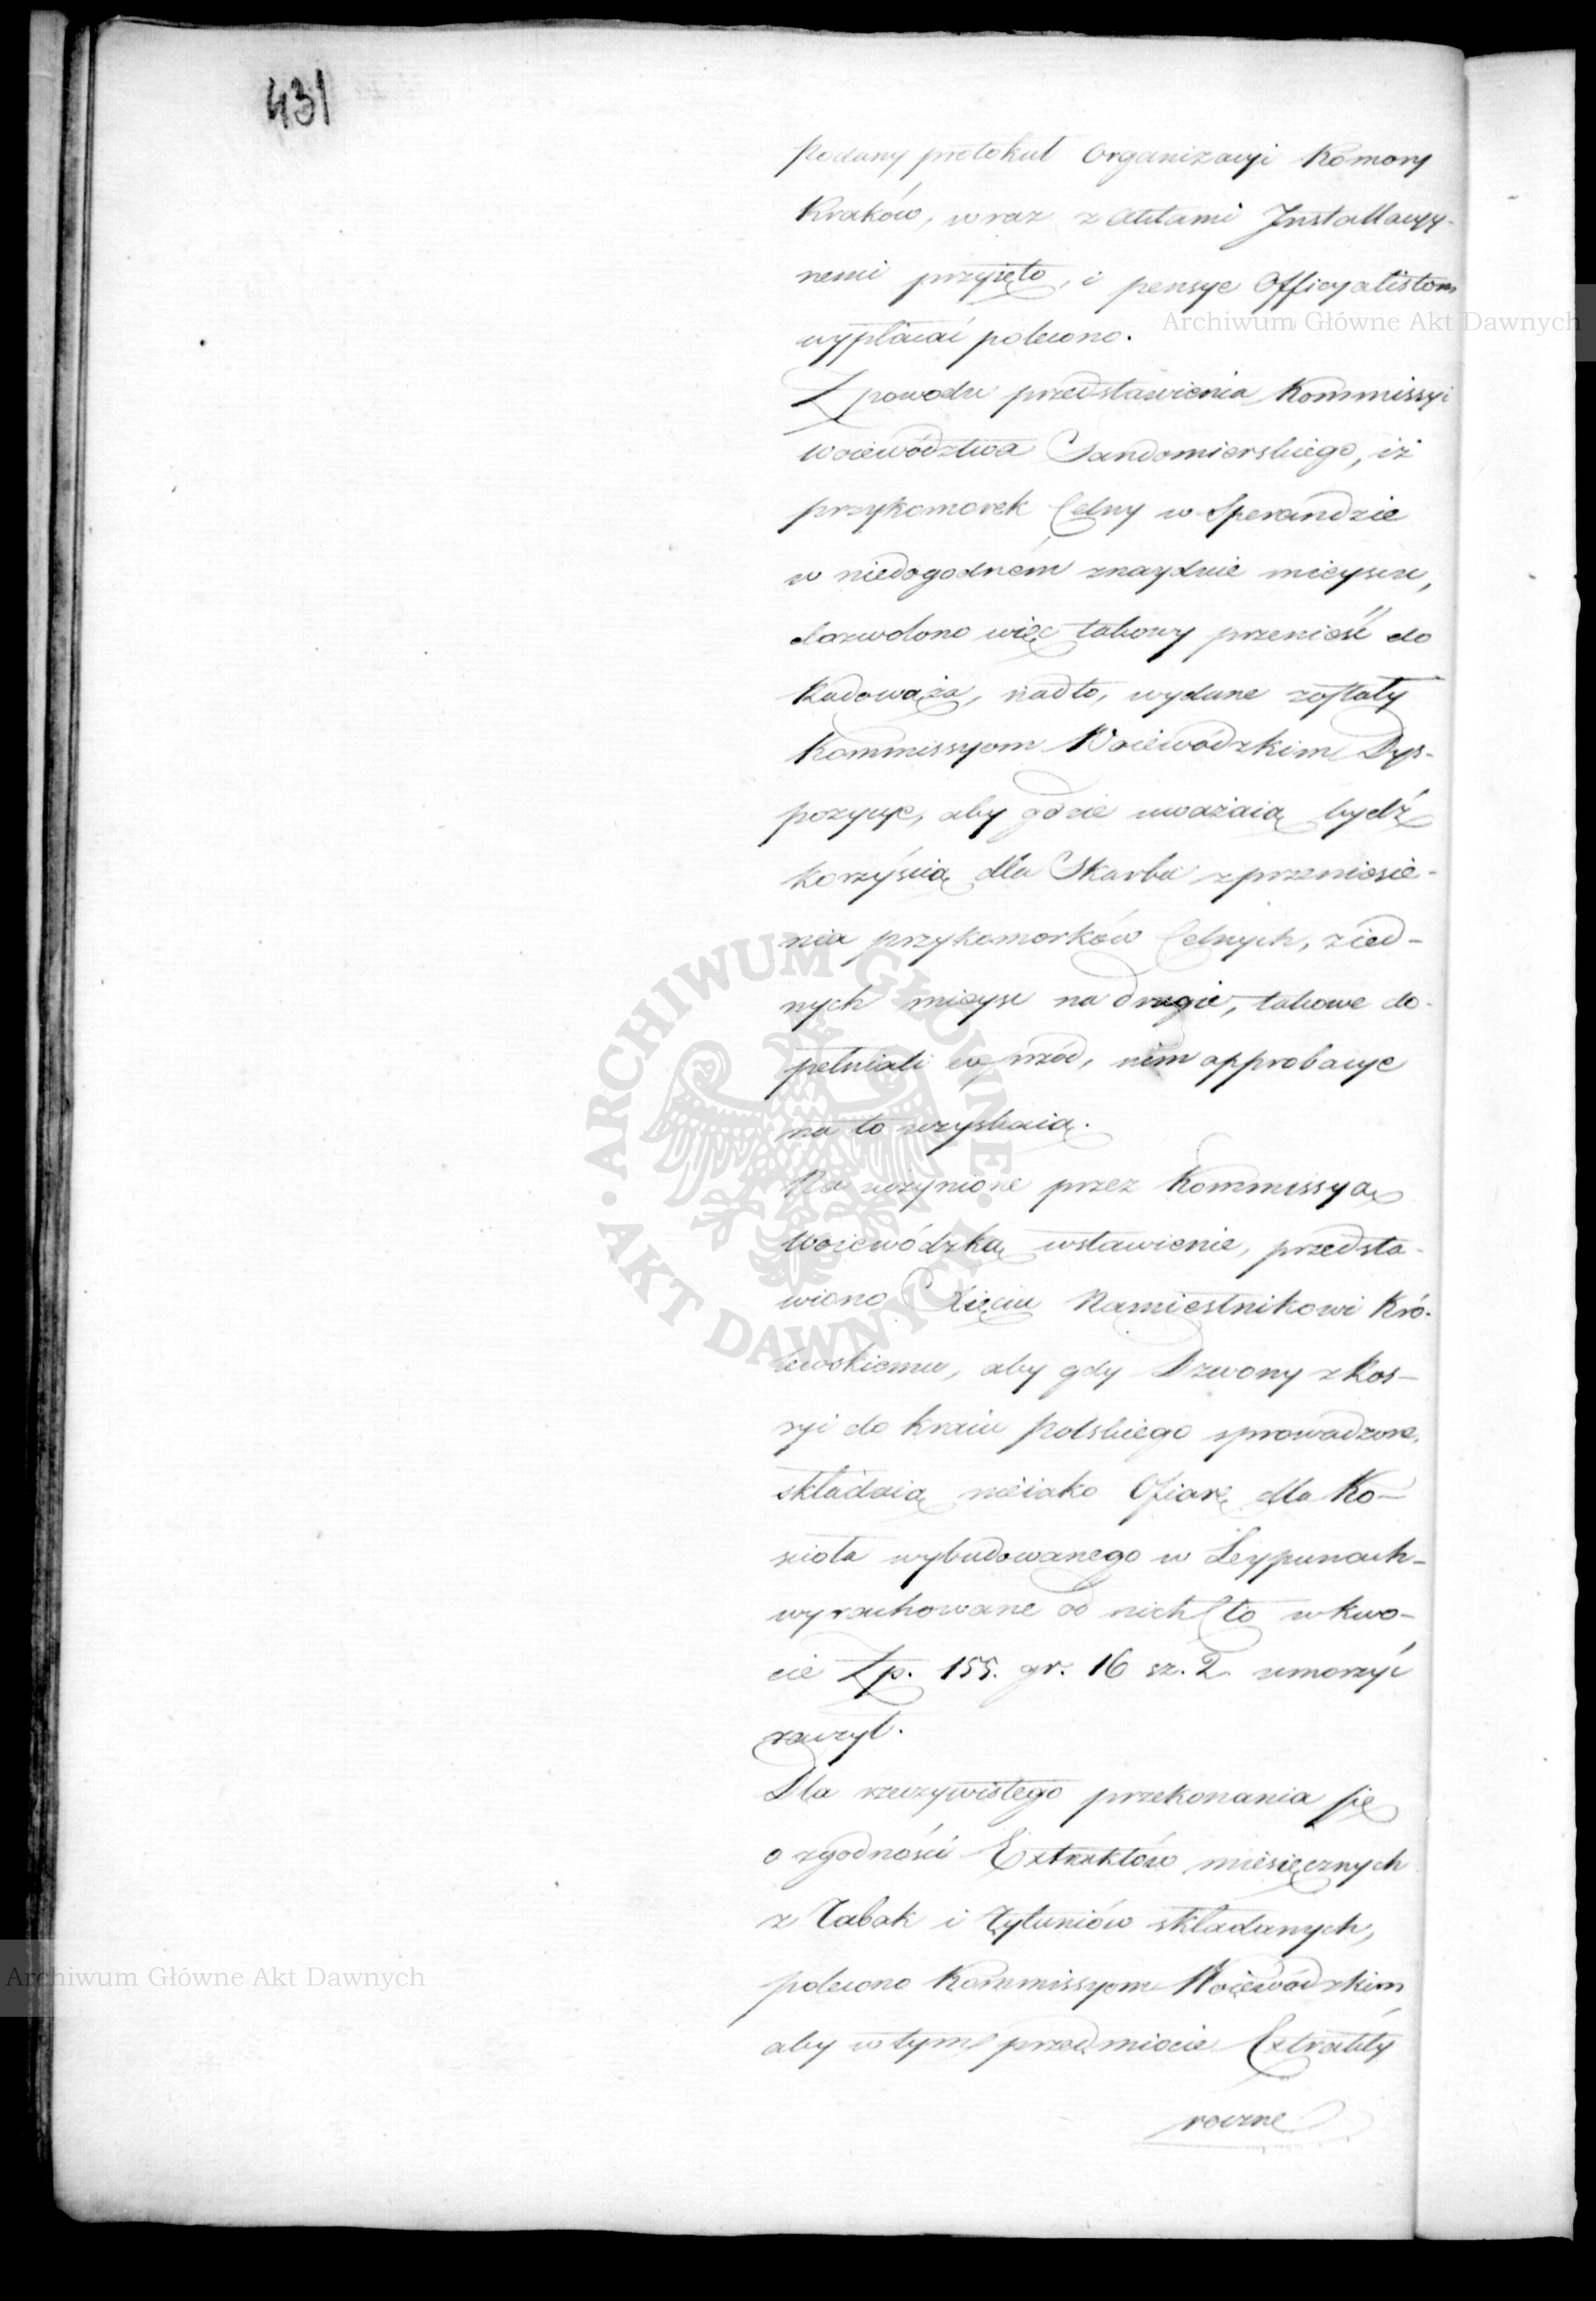 431
Podany protokuł Organizacyi Komory
Kraków, wraz z aktami Installacyy-
nemi przyięto, i pensye Officyalistom
wypłacać polecono.
Z powodu przedstawienia Kommissyi
Woiewództwa Sandomierskiego, iż
przykomorek Celny w Sperandzie
w niedogodném znayduie mieyscu,
dozwolono więc takowy przenieść do
Radowąża, nadto, wydane zostały
Kommissyom Woiewódzkim Dys-
pozycye, aby gdzie uważaią bydź
korzyścią dla Skarbu z przeniesie-
nia przykomorków Celnych, z ied-
nych mieysc na drugie, takowe do-
pełniali w przód, nim approbacye
na to uzyskaią.
Na uczynione przez Kommissyą
Woiewódzką wstawienie, przedsta-
wiono Xięciu Namiestnikowi Kró-
lewskiemu, aby gdy Dzwony z Ros-
syi do kraiu Polskiego sprowadzone,
składaią nieiako Ofiarę dla Ko-
scioła wybudowanego w Leypunach-
wyrachowane od nich Cło w kwo-
cie Zp. 155. gr. 16 sz. 2. umorzyć
raczył.
Dla rzeczywistego przekonania się
o zgodności Extraktów miesięcznych
z Tabak i Tytuniów składanych,
polecono Kommissyom Woiewódzkim
aby w tym przedmiocie Extrakty
roczne
Archiwum Główne Akt Dawnych
Archiwum Główne Akt Dawnych
ARCHIWUM GŁÓWNE AKT DAWNYCH